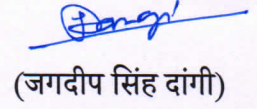 Dangi
(जगदीप सिंह दांगी)